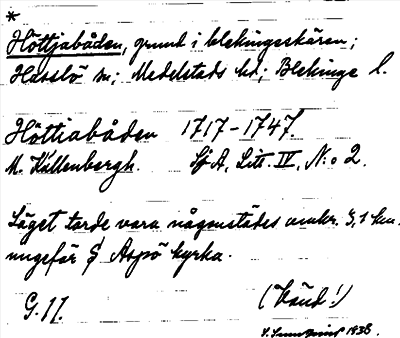 *
Höttjabåden, grund i blekingeskären;
Hasslö sn; Medelstads hd; Blekinge l.
Höttiabåden 1717-1747
M. Källenbergh. SjA, Litt. IV, N:o 2.
Läget torde vara någonstädes omkr. 3,1 km.
ungefär S Aspö kyrka.
G.17. (Vänd!)
1938.